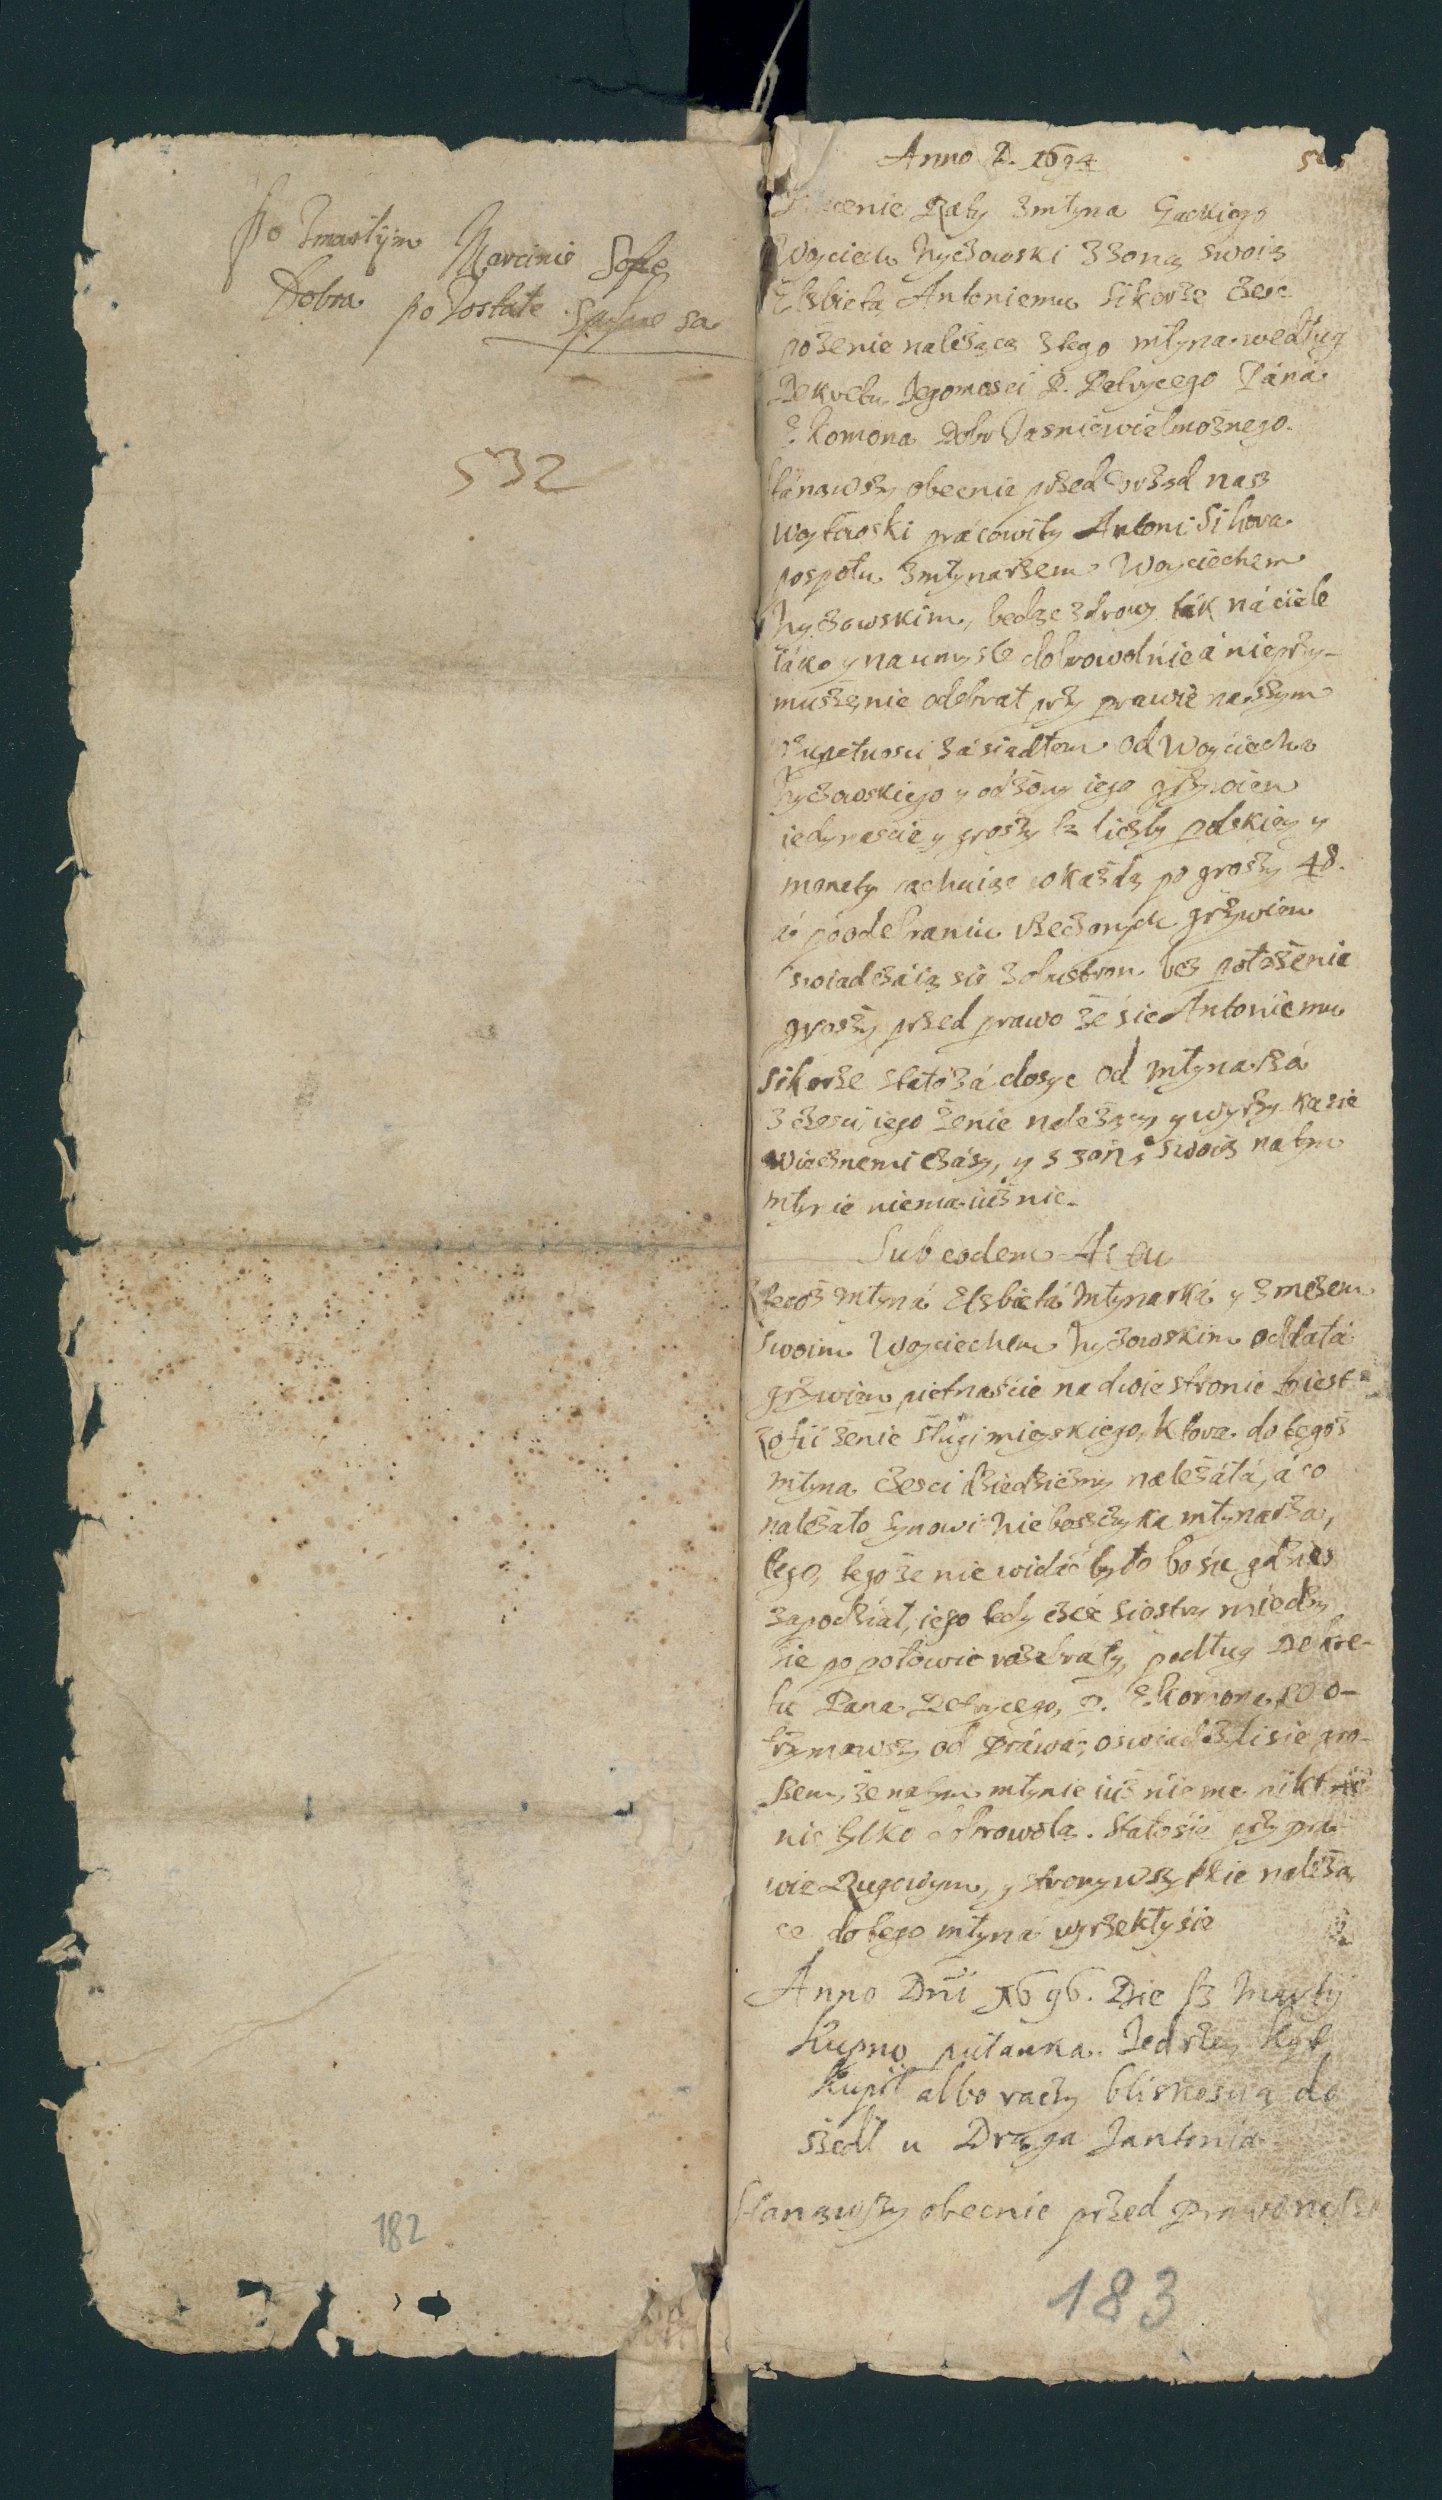 Po Zmarłym Marcinie
Dobra po Zostałe sa
532
182
Anno D. 1694
cenie Raty z młyna Gackiego
Woyciech Zyzowski z żoną swoią
Elsbietą Antoniemu Sikorze część
po żenie należącą z tego młyna według
Dekretu Jegomosci P. Petrycego Pána
Ekomona Dobr Jasniewielmożnego.
stanąwszy obecnie przed vrząd nasz
woytowski prácowity Antoni Sikora
pospołu z młynarzem Woyciechem
Zyzowskim, bedąc zdrowy ták ná ciele
iáko y na umysle dobrowolnie á nieprzy-
muszenie odebrał przy prawie naszym
zupełności zásiadłem od Woyciecha
Zyzowskiego y od żony iego grzywien
iedynascie y groszy liczby polskiey y
monety rachuiąc w każdą po groszy 48.
á po odebraniu rzeczonych grzywien
swiadczáią sie z obu stron bez położenie
groszy przed prawo że sie Antoniemu
Sikorze stało zá dosyc od młynarzá
z czesci iego żenie należący y wyrzyka sie
wiecznemi czásy, y z żoną swoią na tym
młynie niema iuż nic.
Sub eodem Actu
tegoż młyná Elsbietá Młynarká y z mężem
swoim Woyciechem Zyzowskim oddałá
grzywien pietnaście na dwie stronie to iest
Zofii żenie sługi mieyskiego, ktora do tegoż
młyna czesci dziedziczny należáłá, á co
należało synowi nieboszczyka młynarza,
tego, tego że nie widáć było bo sie gdzies
zapodział, iego tedy częsć siostry miedzy
sie po połowie rozebrały, podług Dekre-
tu Pana Petrycego, P. Ekomona, co o-
trzymawszy od Práwá, oswiadczyli sie gro-
szem, że na tym młynie iuż niema nikt
nic tylko dobrowolą. Stało sie przy pra-
wie Rugowym, y strony wszytkie należą
ce do tego młyná wyrzekły sie
Anno Dni 1696. Die
Kupno pułanka Jedrzey Kyt
Kupił albo raczy bliskoscią do
szedł u Drąga Jantonia
Stanąwszy obecnie przed Prawo nasze
183